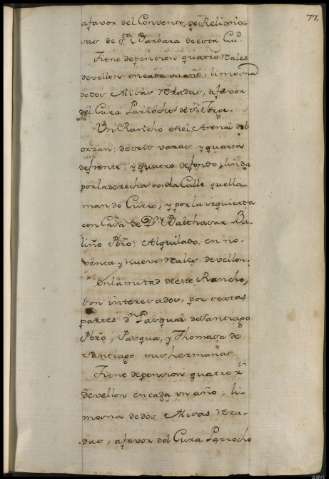 77,
a favor del Convento, de Religio
sas de Sta. Barbara de esta Ciud.
Tiene de pension quatro Reales
de vellon en cada un año, limosna
de dos Misas Rezadas, a favor
del Cura Parrocho de Sn. Jorge.
Un Rancho en el Arenal de
Orzan; de ocho varas, y quarta
de frente, y quatro de fondo, linda
por la derecha con la Calle que lla
man de Curro, y por la izquierda
con Casa de Dn. Balthasar Ba
liño Pbro; Alquilado, en no
venta y nueve Reales de vellon.
En la mitad de este Rancho,
son interesados, por cortas
partes Dn. Pasqual de Santiago
Pbro, Pasqua, y Thomasa de
Santiago sus hermanas.
Tiene de pension quatro Rs.
de vellon en cada un año, li
mosna de dos Misas Reza
das, a favor del Cura Parrocho